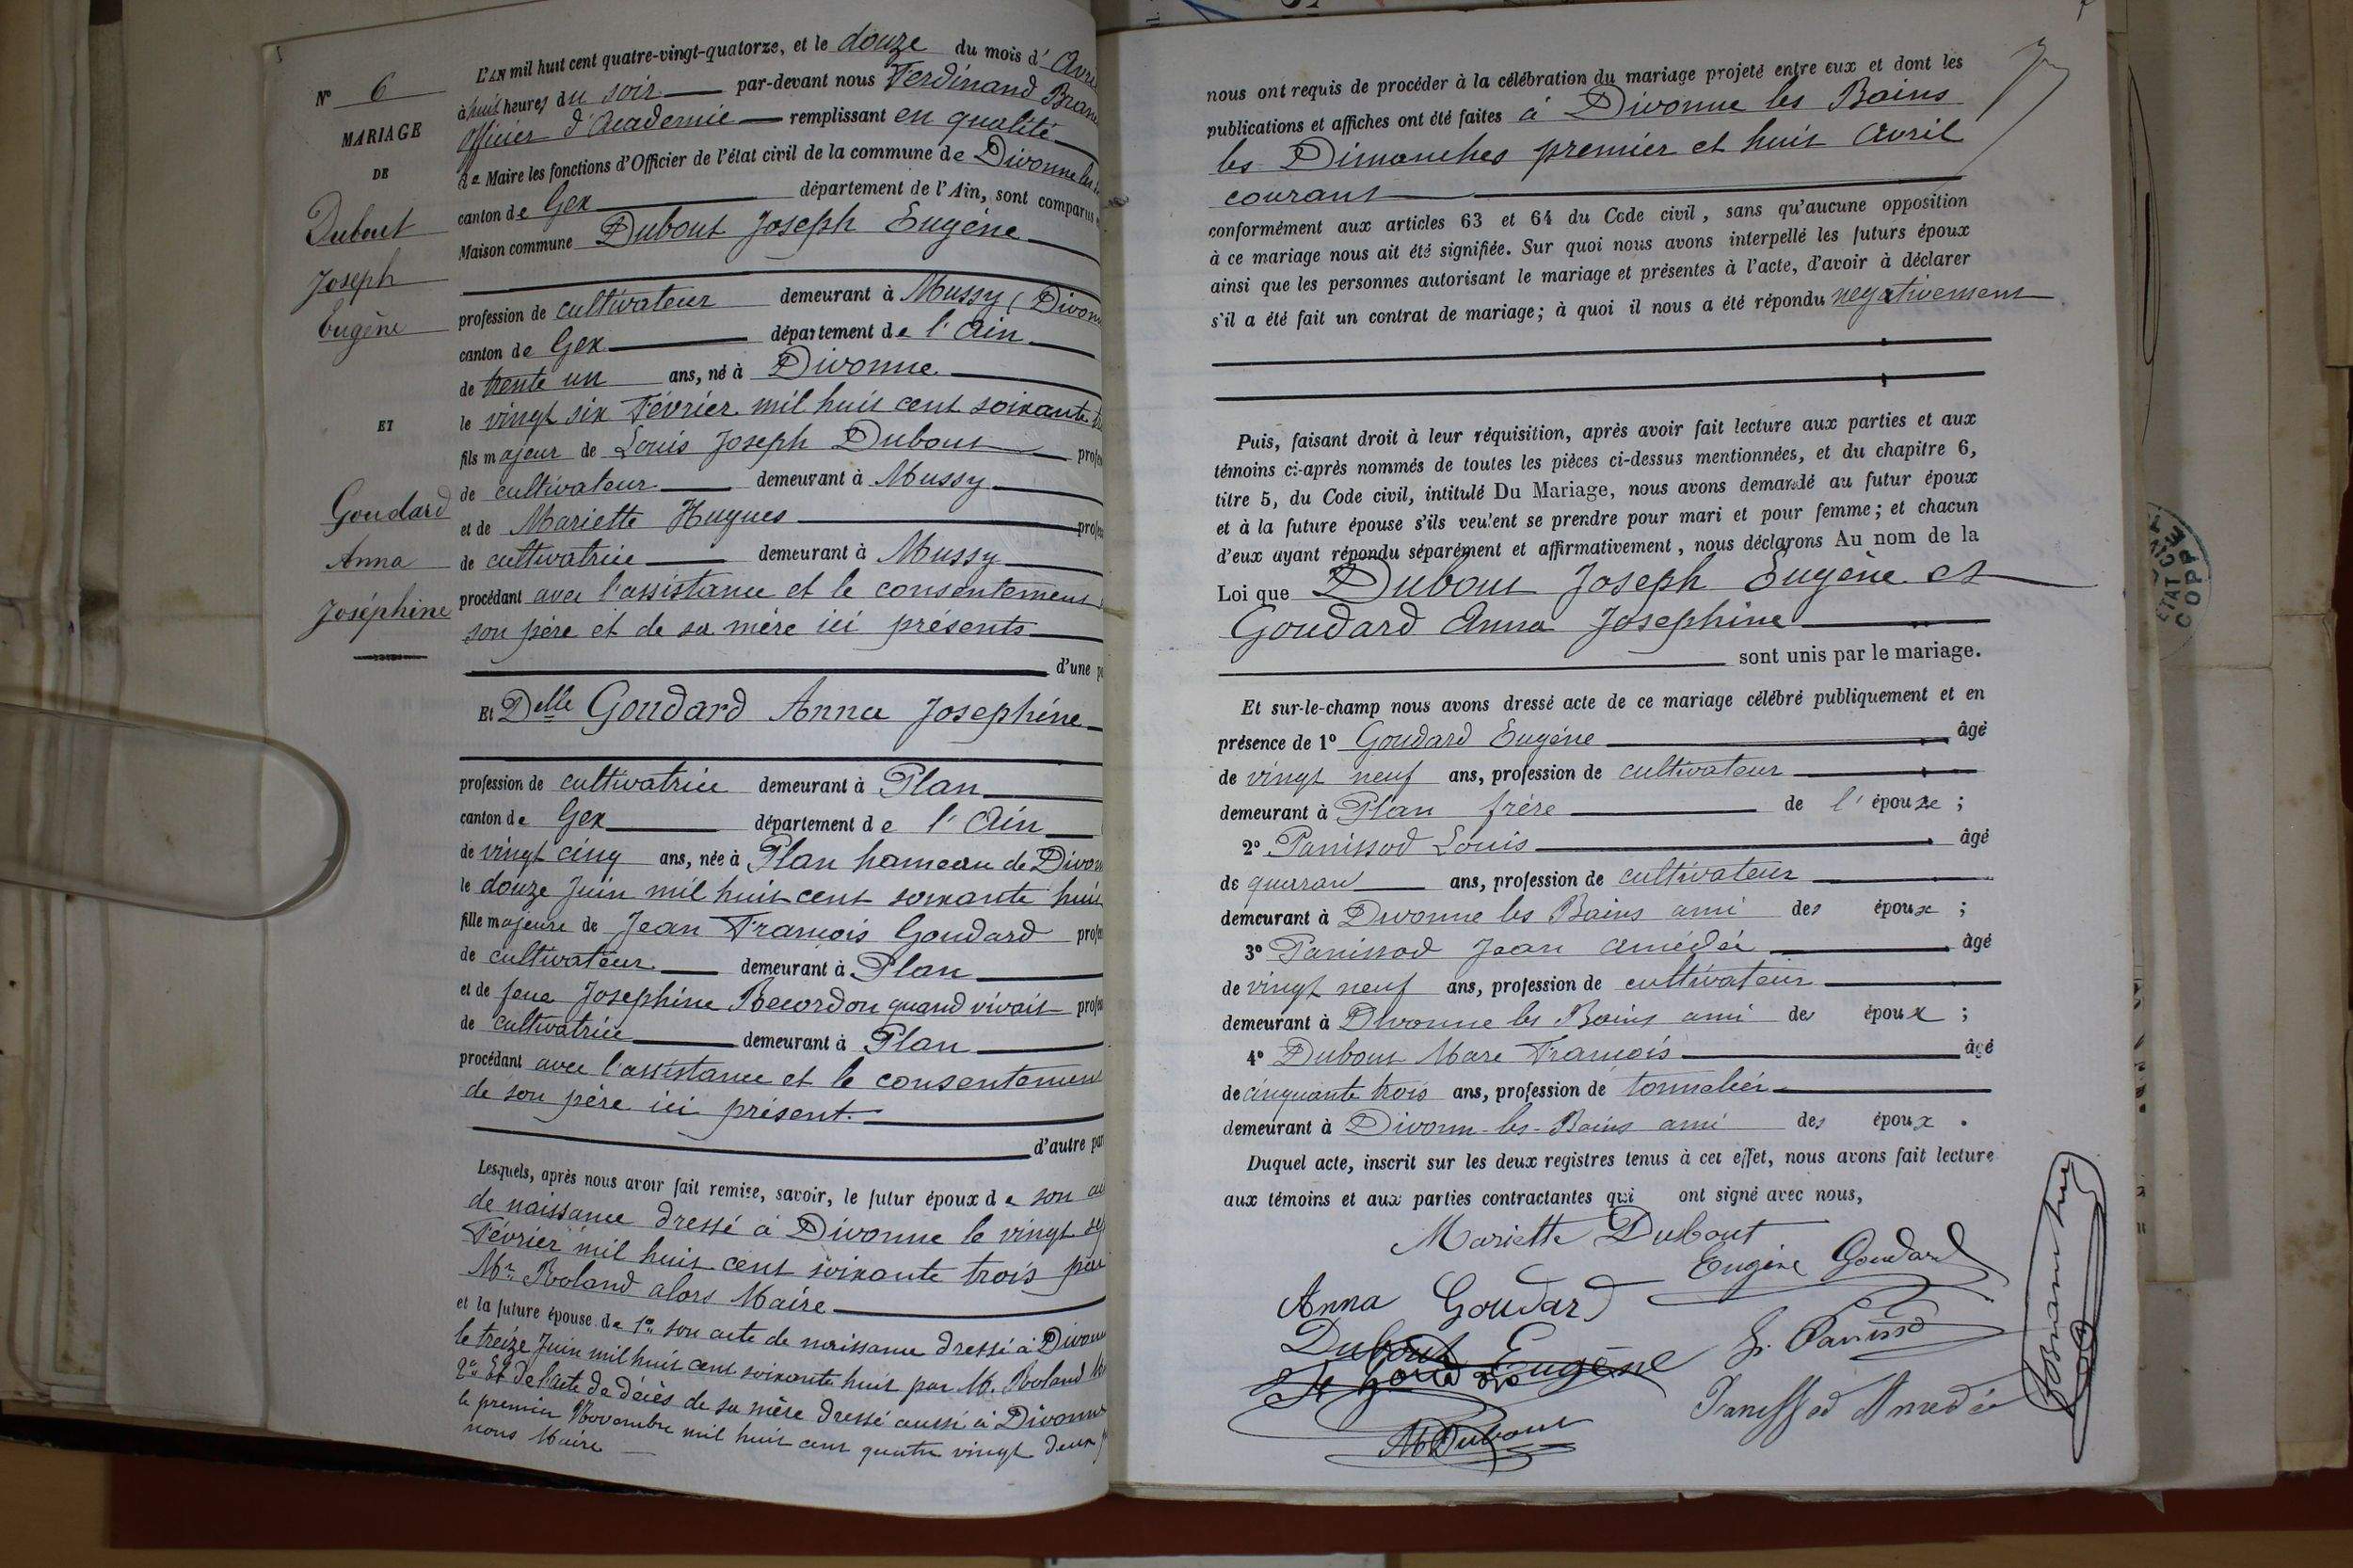 N° 6
MARIAGE
DE
Dubout
Joseph
Eugène
ET
Goudard
Anna
Joséphine
L'AN mil huit cent quatre-vingt-quatorze, et le douze du mois d'Avri
à huit heures du soir par-devant nous Ferdinand
Officier d'Academie remplissant en qualité
de Maire les fonctions d'Officier de l'état civil de la commune de Divonne les
canton de Gex département de l'Ain, sont comparus
Maison commune Dubout Joseph Eugène
profession de cultivateur demeurant à Mussy (Divonn
canton de Gex département de l'Ain
de trente un ans, né à Divonne
le vingt six Février mil huit cent soixante
fils majeur de Louis Joseph Dubout profes
de cultivateur demeurant à Mussy
et de Mariette Hugues profes
de cultivatrice demeurant à Mussy
procédant avec l'assistance et le consentement
son père et de sa mère ici présents
d'une p
Et Delle Goudard Anna Josephine
profession de cultivatrice demeurant à Plan
canton de Gex département de l'Ain
de vingt cinq ans, née à Plan hameau de Divon
le douze Juin mil huit cent soixante huit
fille majeure de Jean François Goudard profes
de cultivateur demeurant à Plan
et de feue Josephine Recordon quand vivait profes
de cultivatrice demeurant à Plan
procédant avec l'assistance et le consentemen
de son père ici présent.
d'autre par
Lesquels, après nous avoir fait remise, savoir, le futur époux de son
de naissance dressé à Divonne le vingt sep
Février mil huit cent soixante trois par
Mr. Roland alors Maire
et la future épouse de 1° son acte de naissance dressé à Divonn
le treize Juin mil huit cent soixante huit par M. Roland
2° Et de l'acte de décès de sa mère dressé aussi à Divonne
le premier Novembre mil huit cent quatre vingt deux
nous Maire
nous ont requis de procéder à la célébration du mariage projeté entre eux et dont les
publications et affiches ont été faites à Divonne les Bains
les Dimanches premier et huit Avril
courant
conformément aux articles 63 et 64 du Code civil, sans qu'aucune opposition
à ce mariage nous ait été signifiée. Sur quoi nous avons interpellé les futurs époux
ainsi que les personnes autorisant le mariage et présentes à l'acte, d'avoir à déclarer
s'il a été fait un contrat de mariage; à quoi il nous a été répondu négativement
Puis, faisant droit à leur réquisition, après avoir fait lecture aux parties et aux
témoins ci-après nommés de toutes les pièces ci-dessus mentionnées, et du chapitre 6,
titre 5, du Code civil, intitulé Du Mariage, nous avons demandé au futur époux
et à la future épouse s'ils veulent se prendre pour mari et pour femme; et chacun
d'eux ayant répondu séparément et affirmativement, nous déclarons Au nom de la
Loi que Dubout Joseph Eugène et
Goudard Anna Josephine
sont unis par le mariage.
Et sur-le-champ nous avons dressé acte de ce mariage célébré publiquement et en
présence de 1° Goudard Eugène âgé
de vingt neuf ans, profession de cultivateur
demeurant à Plan frère de l'épouse ;
2° Panissod Louis âgé
de quarant ans, profession de cultivateur
demeurant à Divonne les Bains ami des époux ;
3° Panissod Jean Amédée âgé
de vingt neuf ans, profession de cultivateur
demeurant à Divonne les Bains ami des époux ;
4° Dubout Marc François âgé
de cinquante trois ans, profession de tonnelier
demeurant à Divonne-les-Bains ami des époux.
Duquel acte, inscrit sur les deux registres tenus à cet effet, nous avons fait lecture
aux témoins et aux parties contractantes qui ont signé avec nous,
Mariette Dubout
Eugène Goudard
Anna Goudard
Dubout Eugène
Panissod Amedée
M Dubout